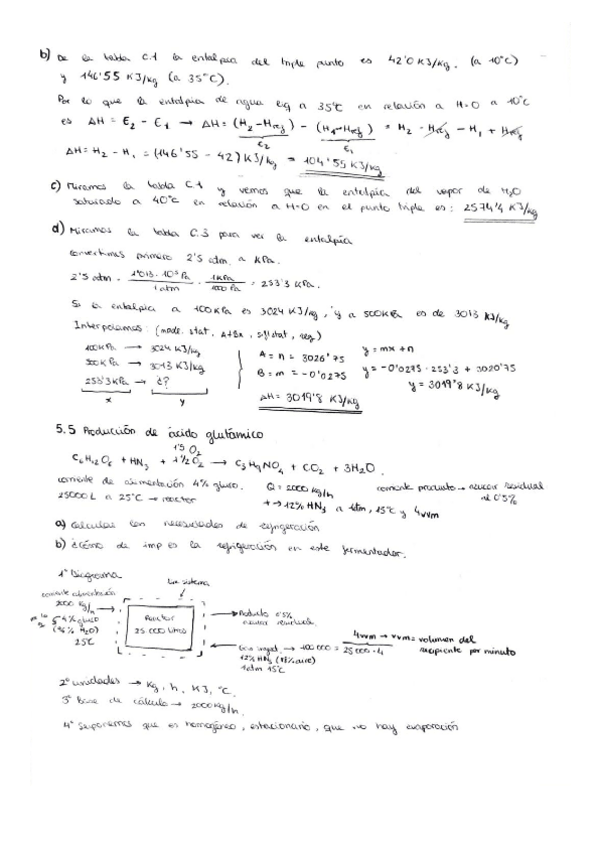 b) De la tabla C.1 la entalpia del triple punto es 42'0 KJ/kg. (a 10°C)
y 146'55 KJ/kg (a 35°C).
Por lo que la entalpia de agua liq a 35°C en relación a H=0 a 10°C
es ΔH = E2 - E1 → ΔH = (H2-Href) - (H1-Href) = H2 - Href - H1 + Href
E2 E1
ΔH = H2 - H1 = (146'55 - 42) KJ/kg = 104'55 KJ/kg
c) Miramos la tabla C.1 y vemos que la entalpia del vapor de H2O
saturado a 40°C en relación a H=0 en el punto triple es: 2574'4 KJ/kg
d) Miramos la tabla C.3 para ver la entalpia
convertimos primero 2'5 atm a KPa.
2'5 atm · 1'013·10⁵ Pa / 1 atm · 1KPa / 1000 Pa = 253'3 KPa.
Si la entalpia a 100KPa es 3024 KJ/kg, y a 500KPa es de 3013 KJ/kg
Interpolamos: (mode. stat, A+Bx, reg)
100KPa → 3024 KJ/kg
500KPa → 3013 KJ/kg
253'3KPa → ¿?
x y
A = n = 3026'75
B = m = -0'0275
ΔH = 3019'8 KJ/kg
y = mx + n
y = -0'0275 · 253'3 + 3020'75
y = 3019'8 KJ/kg
5.5 Producción de ácido glutámico
1'5 O2
C6H12O6 + HN3 + 1/2 O2 → C5H9NO4 + CO2 + 3H2O
corriente de alimentación 4% gluco. Q = 2000 kg/h corriente producto → azucar residual
25000 L a 25°C → reactor + → 12% HN3 a 1atm, 15°C y 4vvm al 0'5%
a) Calcular las necesidades de refrigeración
b) ¿Cómo de imp es la refrigeración en este fermentador.
1º Diagrama
Lim sistema
corriente alimentación
2000 Kg/h
4% gluco
(96% H2O)
25°C
Reactor
25.000 litros
Producto 0'5%
azucar residual
→ 100 000 = 25000 · 4
12% HN3 (88% aire)
1 atm 15°C
4vvm → vvm = volumen del
recipiente por minuto
2º unidades → Kg, h, KJ, °C.
3º Base de cálculo → 2000 Kg/h.
4º Suponemos que es homogéneo, estacionario, que no hay evaporación